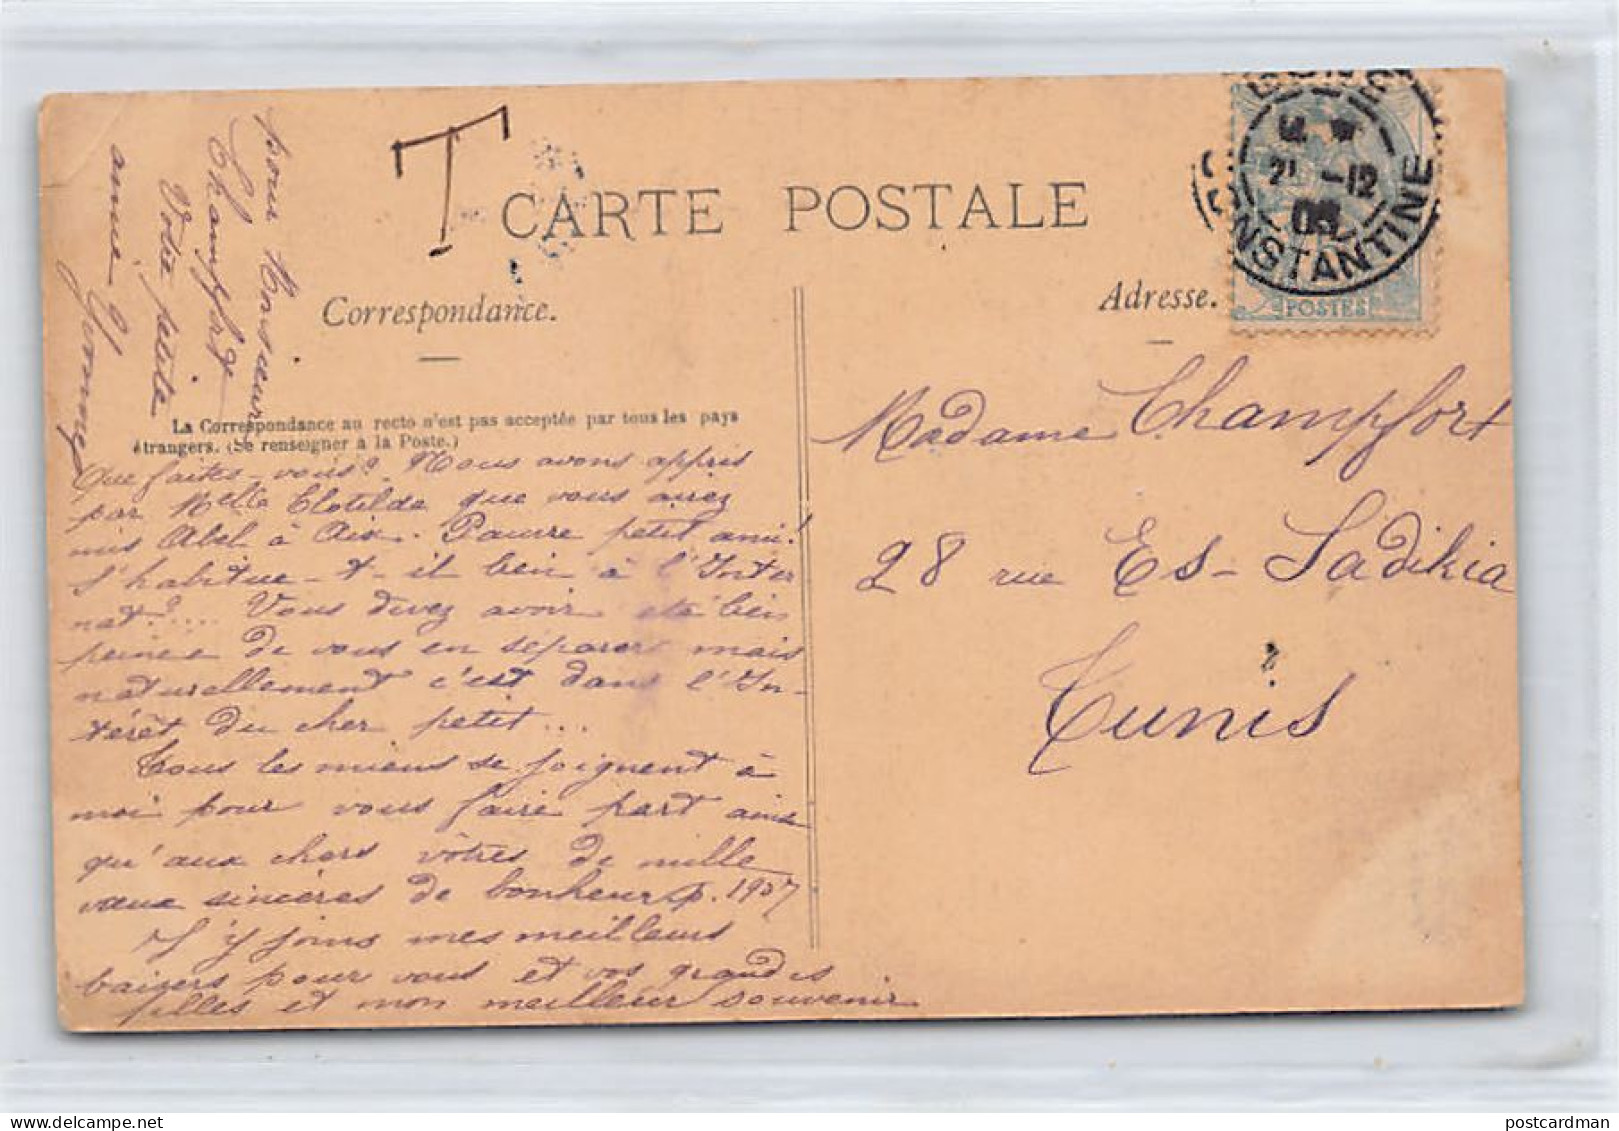 T
CARTE POSTALE
Correspondance.
Adresse.
La Correspondance au recto n'est pas acceptée par tous les pays
étrangers. (Se renseigner à la Poste.)
BONE
21 -12
CONSTANTINE
POSTES
Que faites-vous? Nous avons appris
par Melle Clotilde que vous aviez
mis Abel à Aix. Pauvre petit ami!
S'habitue-t-il bien à l'Inter
nat?.... Vous devez avoir été bien
peinée de vous en séparer mais
naturellement c'est dans l'In-
térêt du cher petit...
Tous les miens se joignent à
moi pour vous faire part ainsi
qu'aux chers vôtres de mille
vœux sincères de bonheur p. 1907
J'y joins mes meilleurs
baisers pour vous et vos grandes
filles et mon meilleur souvenir
pour Monsieur
Champfort
Votre petite
amie
Madame Champfort
28 rue Es-Sadikia
Tunis
postcardman